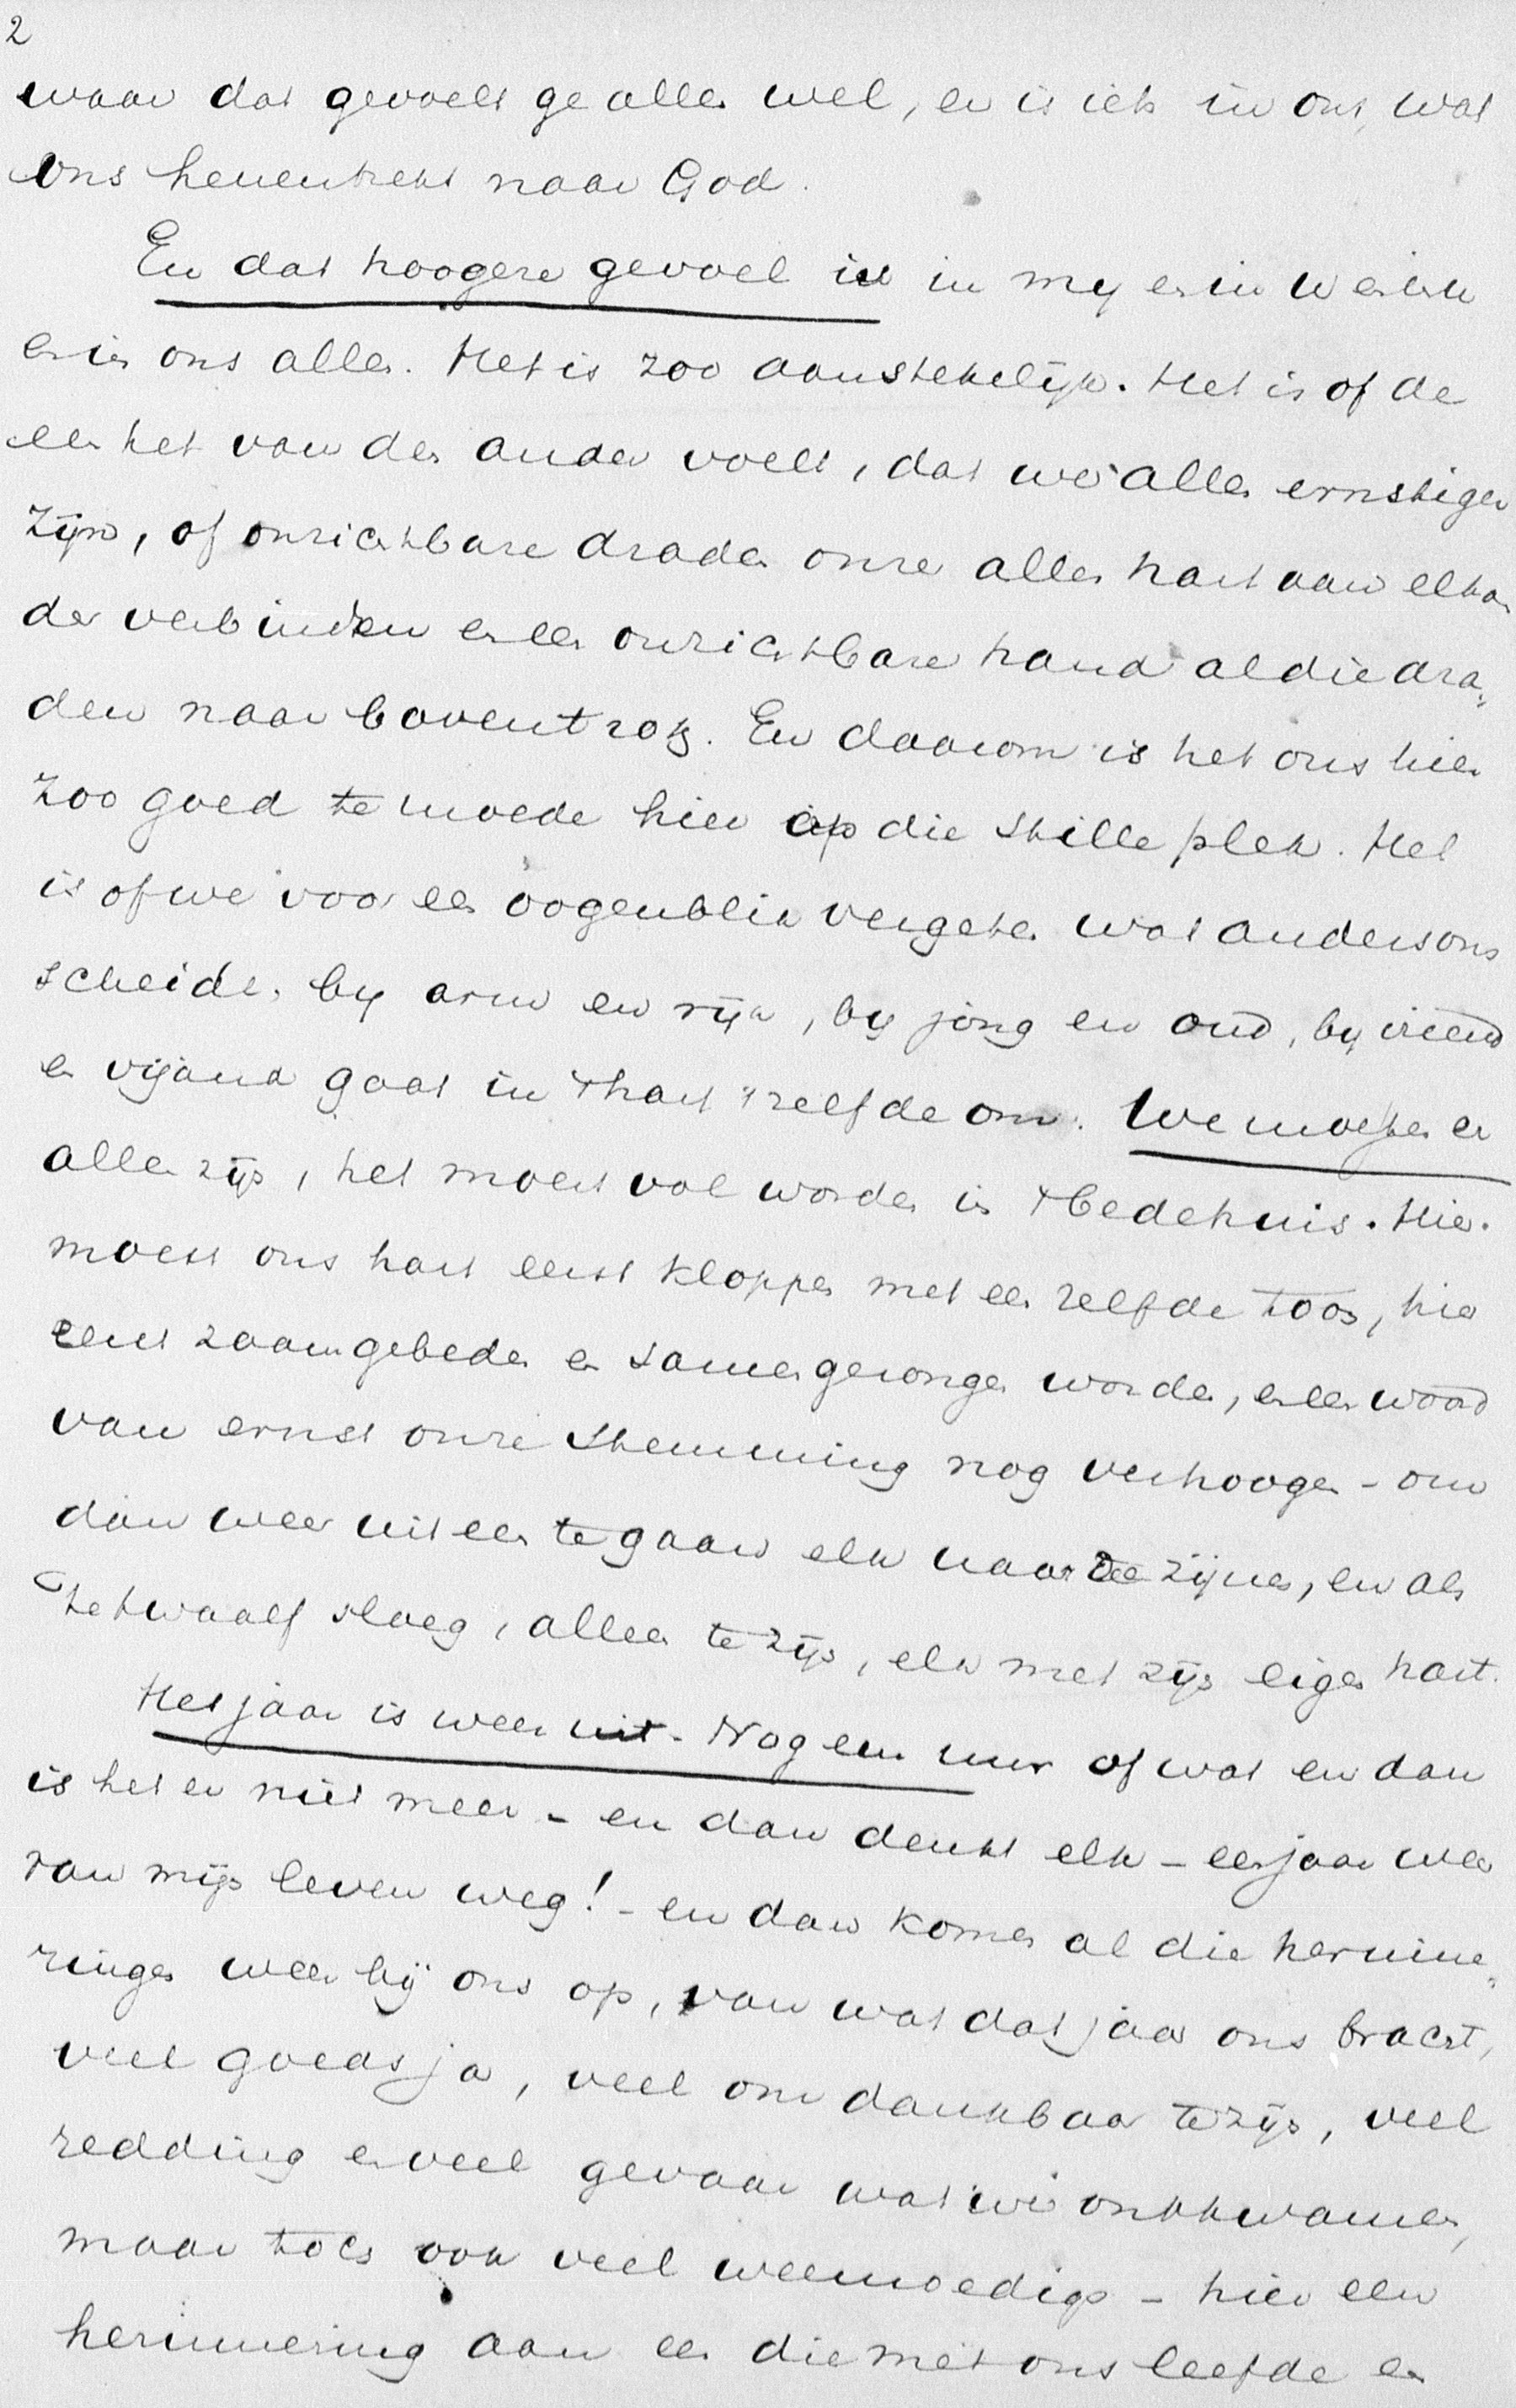 2
waar dat gevoelt ge allen wel, er is iets in ons, wat
ons henentrekt naar God.
En dat hoogere gevoel is in mij en in u en
en in ons allen. Het is zoo aanstekelijk. Het is of de
een het van den ander voelt, dat we allen ernstiger
zijn, of onzichtbare draden onze aller hart aan elkan
der verbinden en een onzichtbare hand al die dra„
den naar boven trok. En daarom is het ons hier
zoo goed te moede hier op die stille plek. Het
is of we voor een oogenblik vergeten wat anders ons
scheidt, bij arm en rijk, bij jong en oud, bij vriend
en vijand gaat in 't hart 't zelfde om. We moesten er
allen zijn, het moest vol worden in 't bedehuis. Hier
moest ons hart eerst kloppen met een zelfde toon, hier
eerst zaamgebeden en samengezongen worden, en een woord
van ernst onze stemming nog verhoogen - om
dan weer uiteen te gaan elk naar de zijnen, en als
het twaalf sloeg, alleen te zijn, elk met zijn eigen hart.
Het jaar is weer uit. Nog een uur of wat en dan
is het er niet meer - en dan denkt elk - een jaar weer
van mijn leven weg! - en dan komen al die herinne„
ringen weer bij ons op, van wat dat jaar ons bracht,
veel goeds ja, veel om dankbaar te zijn, veel
redding en veel gevaar wat we ontkwamen,
maar toch ook veel weemoedigs - hier een
herinnering aan een die met ons leefde en